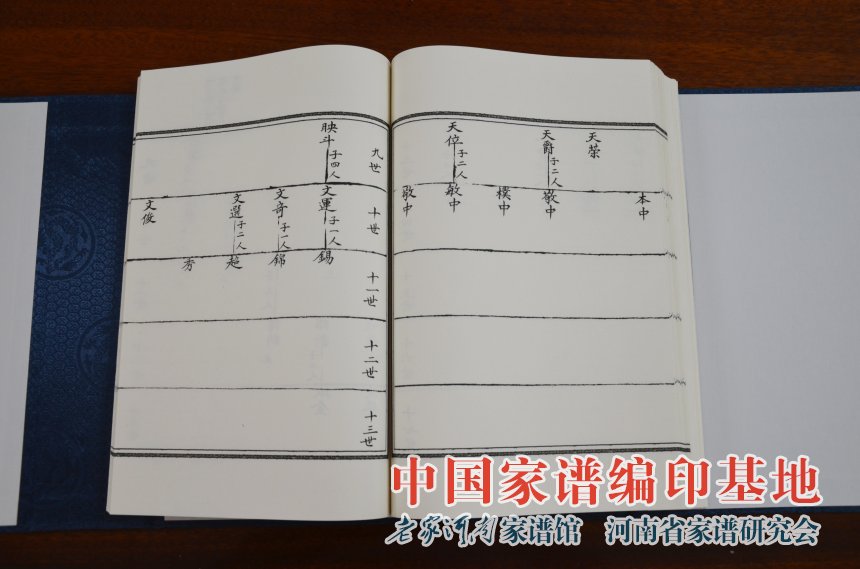 天榮
天爵子二人
天位子二人
本中
敬中
樸中
敏中
敬中
九世
十世
十一世
十二世
十三世
映斗子四人
文運子一人
文奇子一人
文選子二人
文俊
錫
錦
超
秀
中国家谱编印基地
老家河南家谱馆 河南省家谱研究会